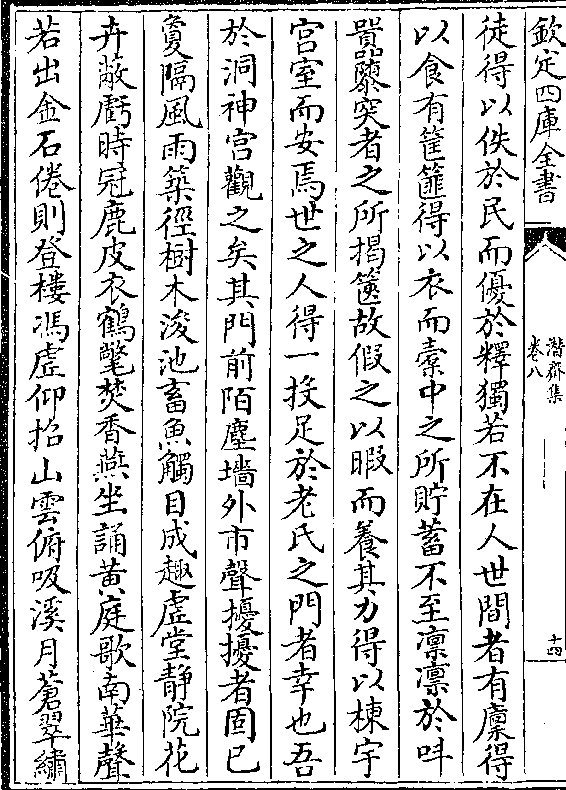 欽定四庫全書
潛齋集
卷八
十四
徒得以佚於民而優於釋獨若不在人世間者有廩得
以食有筐篚得以衣而橐中之所貯蓄不至凜凜於叫
囂隳突者之所揭篋故假之以暇而養其力得以棟宇
宫室而安焉世之人得一投足於老氏之門者幸也吾
於洞神宫觀之矣其門前陌塵墻外市聲擾擾者固已
敻隔風雨築徑樹木浚池畜魚觸目成趣虚堂静院花
卉蔽虧時冠鹿皮衣鶴氅焚香燕坐誦黄庭歌南華聲
若出金石倦則登樓馮虚仰招山雲俯吸溪月蒼翠繡